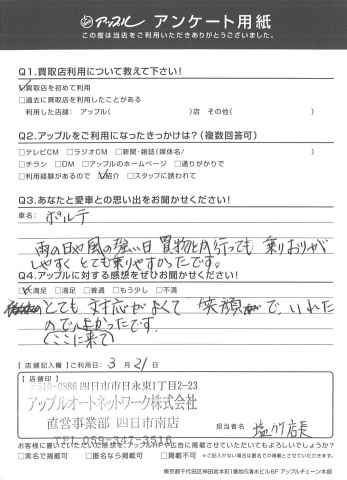 アップル アンケート用紙
この度は当店をご利用いただきありがとうございました。
Q1.買取店利用について教えて下さい!
☑買取店を初めて利用
□過去に買取店を利用したことがある
利用した店舗:アップル( )店 その他( )
Q2.アップルをご利用になったきっかけは?(複数回答可)
□テレビCM □ラジオCM □新聞・雑誌(媒体名/ )
□チラシ □DM □アップルのホームページ □通りがかりで
□利用経験があるので ☑紹介 □スタッフに誘われて
Q3.あなたと愛車との思い出をお聞かせください!
車名: ポルテ
雨の日や風の強い日 買物とか行っても 乗りおりが
しやすく とても乗りやすかったです。
Q4.アップルに対する感想をぜひお聞かせください!
☑満足 □満足 □普通 □もう少し □不満
とても 対応がよくて 笑顔 で いれた
のでよかったです。
(ここに来て)
【店舗記入欄】ご利用日: 3 月 21 日
【店舗印】
〒510-0886 四日市市日永東1丁目2-23
アップルオートネットワーク株式会社
直営事業部 四日市南店
TEL 059-347-3516
担当者名: 塩川店長
お客様に書いていただいた感想をアップルHPや広告に掲載させていただいてもよろしいでしょうか?
□実名で掲載可 □匿名なら掲載可 □掲載不可 ※ご記入がない場合は匿名での掲載とさせていただきます。
東京都千代田区神田岩本町1番地5清水ビル6F アップルチェーン本部